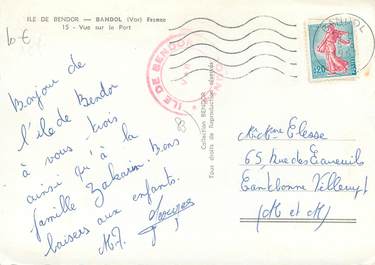 ILE DE BENDOR — BANDOL (Var) France
15 - Vue sur le Port
10 €
Bonjour de
l'île de Bendor
à vous trois
ainsi qu'à la
famille Zakarin. Bons
baisers aux enfants.
MJ.
Collection BENDOR
Tous droits de Reproduction réservés
ILE DE BENDOR
BANDOL
0,20
65, Rue des
(M et M)